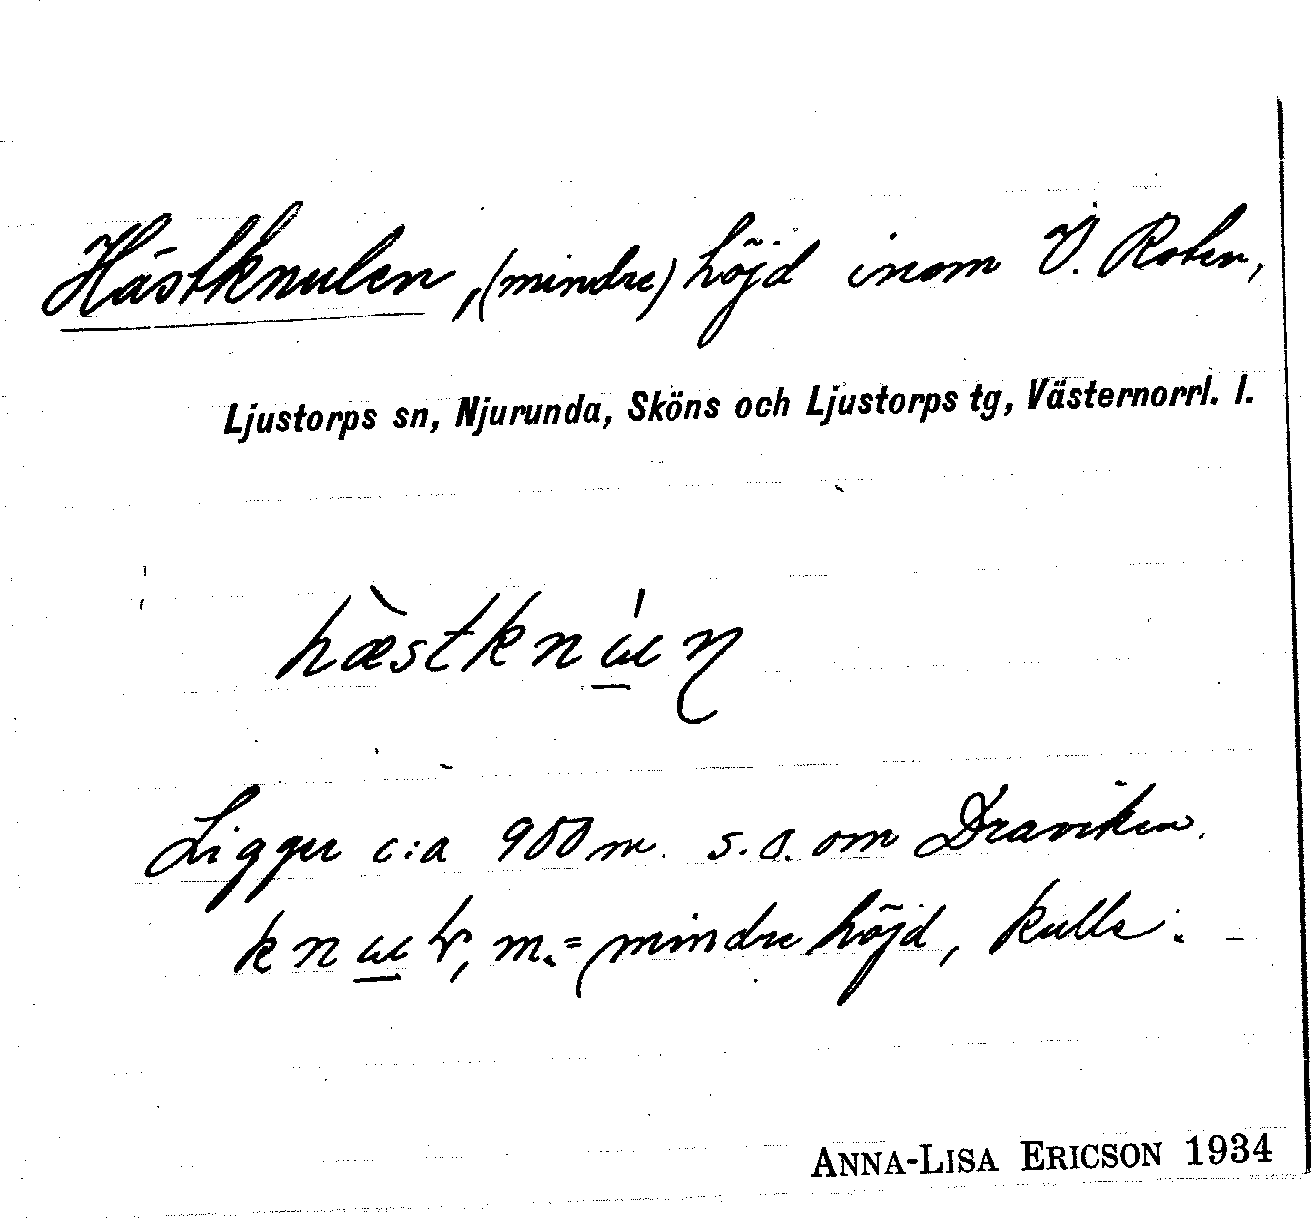 Hästknulen, (mindre) höjd inom V. Roten,
Ljustorps sn, Njurunda, Sköns och Ljustorps tg, Västernorrl. l.
hæ̀stknɯ́ɳ
Ligger c:a 900 m. s.o. om Draviken.
knɯɽ, m. = mindre höjd, kulle. –
ANNA-LISA ERICSON 1934